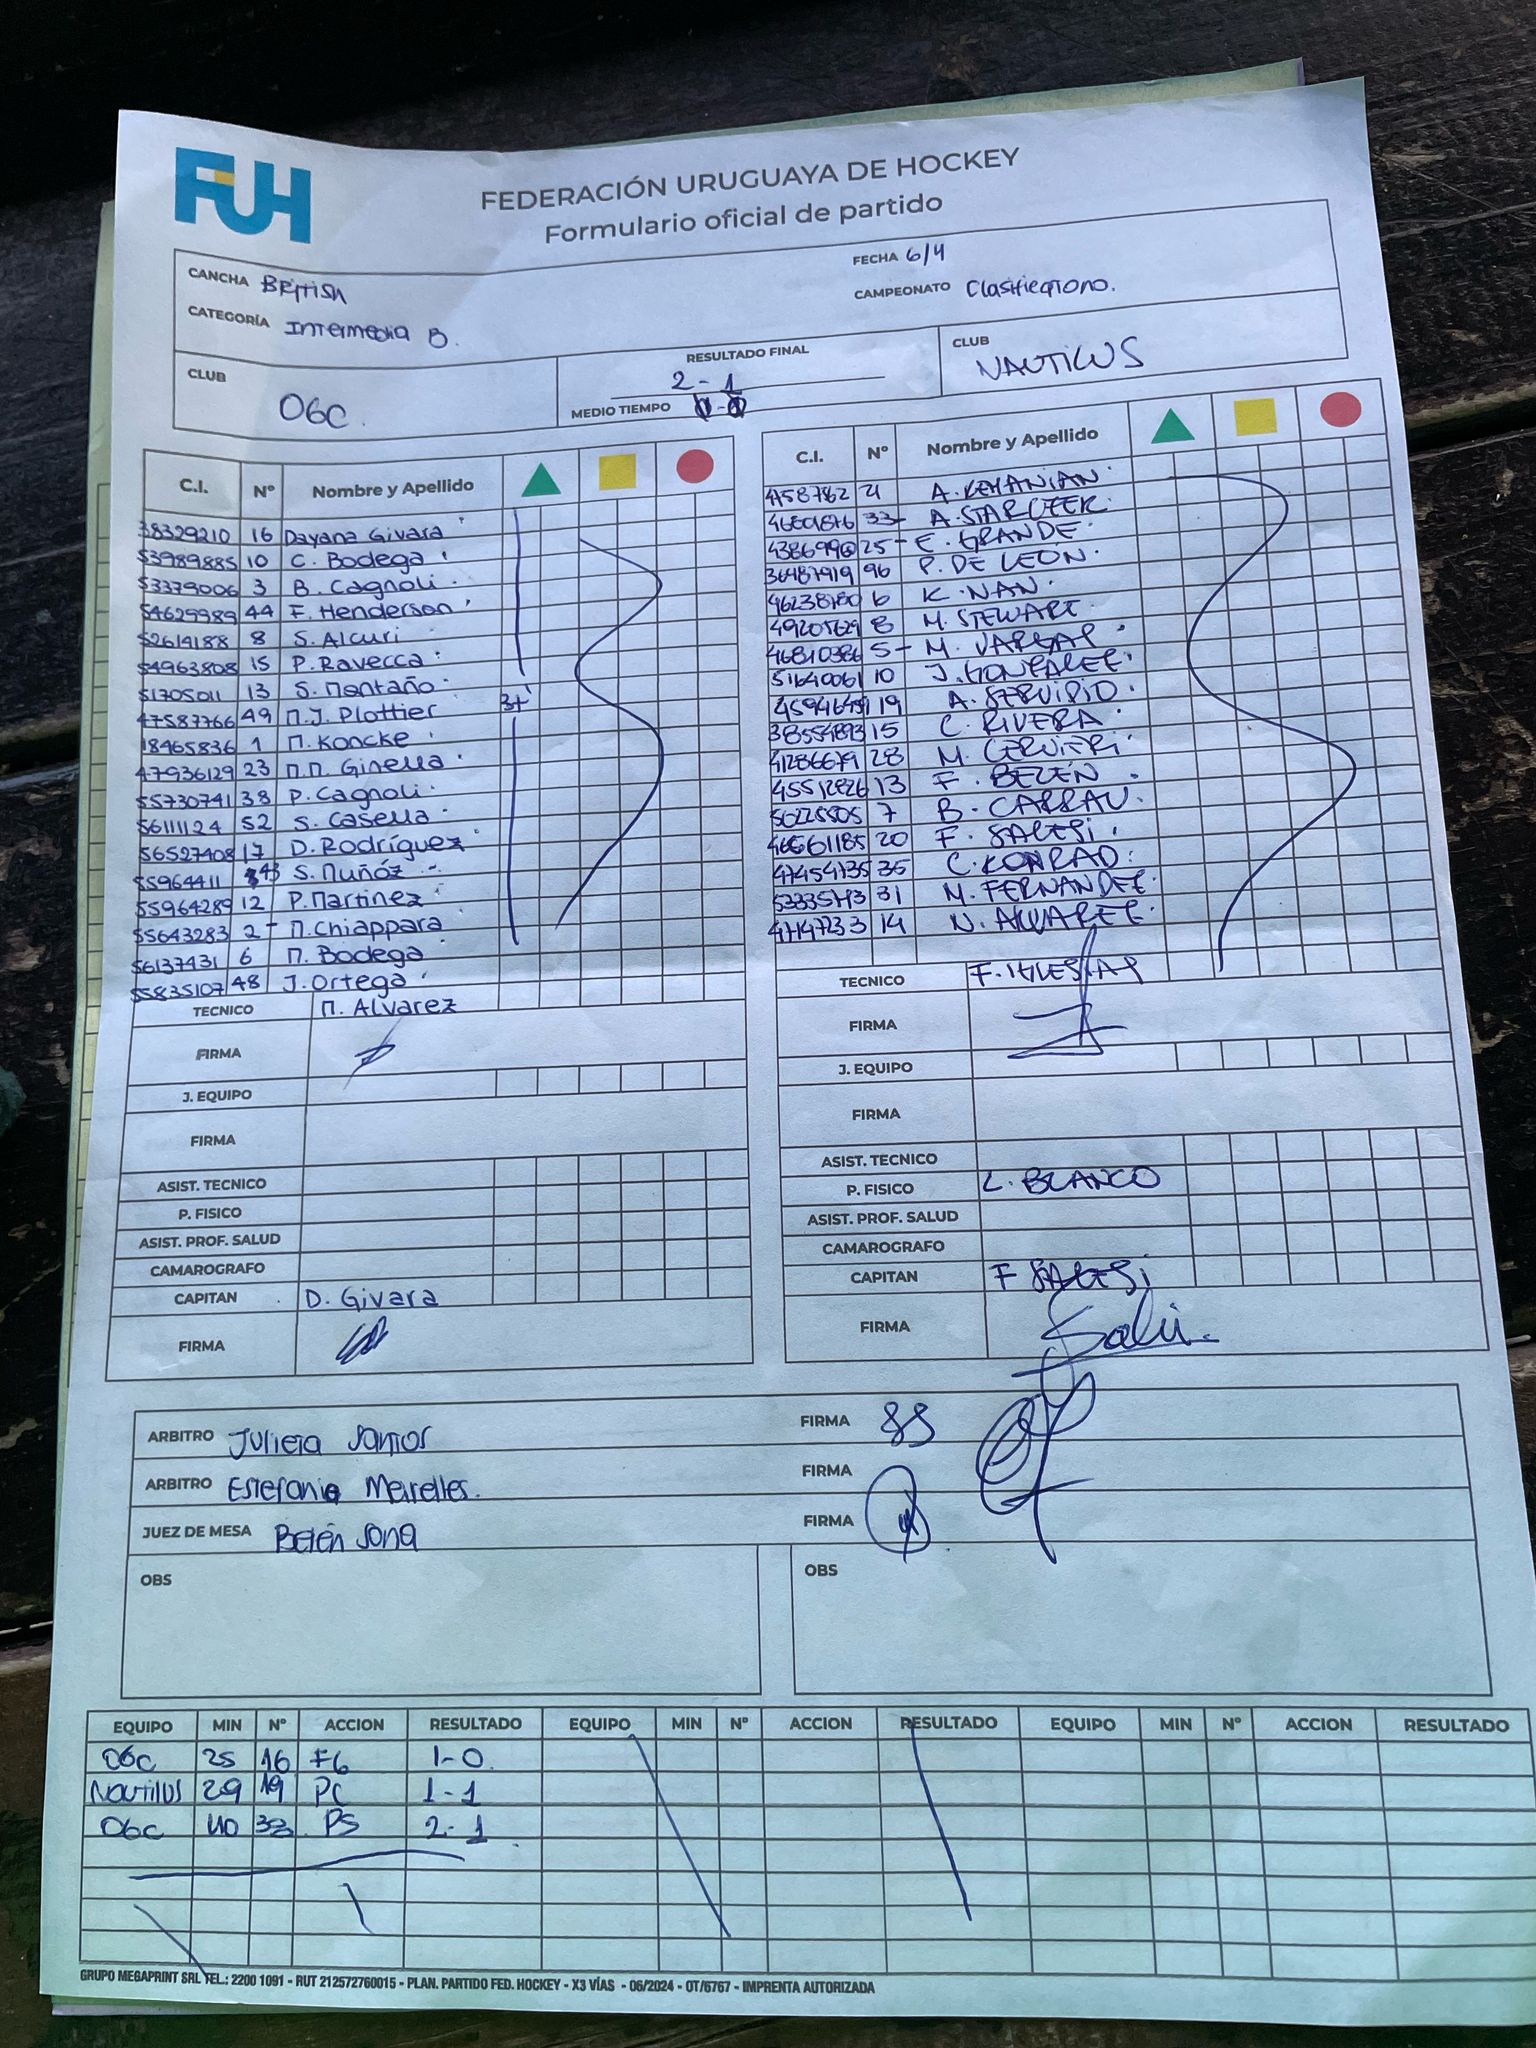 FUH
FEDERACIÓN URUGUAYA DE HOCKEY
Formulario oficial de partido
CANCHA British
FECHA 6/4
CATEGORÍA Intermedia B.
CAMPEONATO
CLUB OGC.
RESULTADO FINAL 2-1
MEDIO TIEMPO
CLUB NAUTILUS
C.I. Nº Nombre y Apellido
38329210 16 Dayana Givara
53989885 10 C. Bodega
53379006 3 B. Cagnoli
54629989 44 F. Henderson
52614188 8 S. Alcuri
54963808 15 P. Ravecca
51705011 13 S. Montaño
47587766 49 M.J. Plottier
18465836 1 M. Koncke
47936129 23 M.M. Ginella
55730741 38 P. Cagnoli
56111124 52 S. Casella
56527408 17 D. Rodríguez
55964411 S. Muñóz
55964289 12 P. Martinez
55643283 2 M. Chiappara
56137431 6 M. Bodega
55835107 48 J. Ortega
TECNICO M. Alvarez
FIRMA
J. EQUIPO
FIRMA
ASIST. TECNICO
P. FISICO
ASIST. PROF. SALUD
CAMAROGRAFO
CAPITAN D. Givara
FIRMA
C.I. Nº Nombre y Apellido
4758762 21 A. KEHANIAN
33 A. STARCZEK
25 E. GRANDE
36487919 96 P. DE LEON
6 K. NAN
49205629 8 M. STEWART
46810386 5 M. VARGAS
51640061 10 J. GONZALEZ
19 A. SERVIDIO
38554893 15 C. RIVERA
41286679 28 M. CERVIERI
45512826 13 F. BELÉN
50225505 7 B. CARRAU
46561185 20 F. SALESI
47454735 35 C. KONRAD
53335713 31 M. FERNANDEZ
47147233 14 N. ALVAREZ
TECNICO F. IGLESIAS
FIRMA
J. EQUIPO
FIRMA
ASIST. TECNICO
P. FISICO L. BLANCO
ASIST. PROF. SALUD
CAMAROGRAFO
CAPITAN F SALESI
FIRMA
ARBITRO Julieta Santos FIRMA
ARBITRO Estefania Meirelles. FIRMA
JUEZ DE MESA Belén FIRMA
OBS
OBS
EQUIPO MIN Nº ACCION RESULTADO EQUIPO MIN Nº ACCION RESULTADO EQUIPO MIN Nº ACCION RESULTADO
OGC 25 16 FG 1-0
Nautilus 29 19 PC 1-1
OGC 40 38 PS 2-1
GRUPO MEGAPRINT SRL TEL.: 2200 1091 - RUT 212572760015 - PLAN. PARTIDO FED. HOCKEY - X3 VÍAS - 06/2024 - OT/6767 - IMPRENTA AUTORIZADA